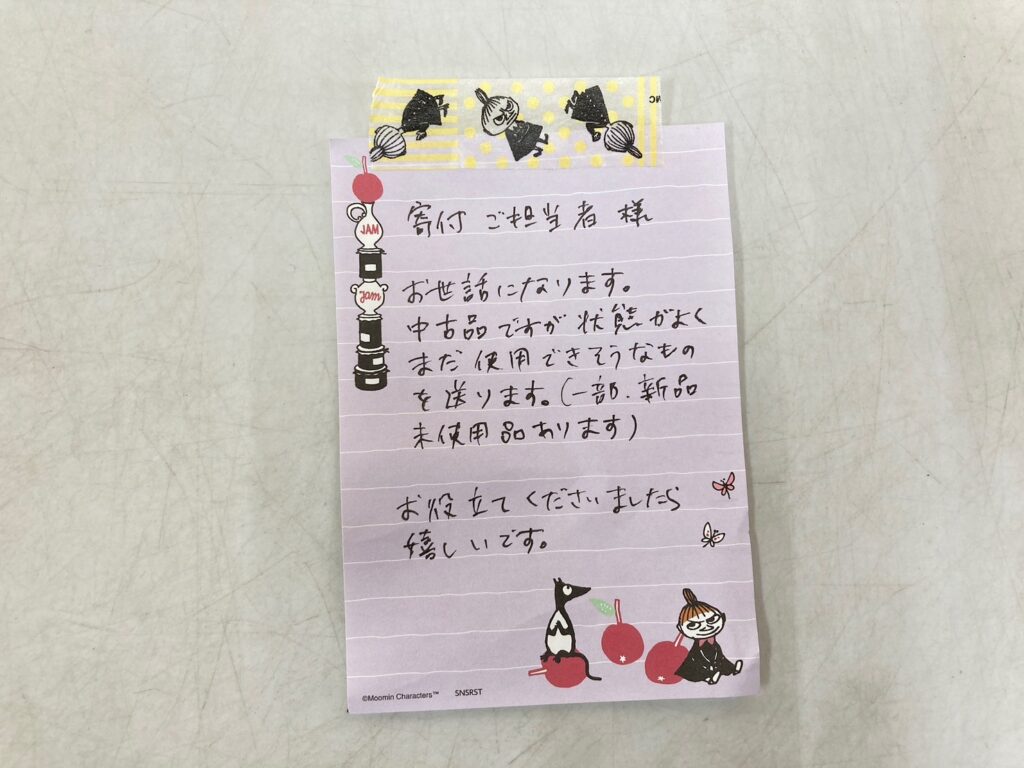 JAM
jam
寄付 ご担当者 様
お世話になります。
中古品ですが 状態がよく
まだ 使用できそうなもの
を送ります。(一部、新品
未使用品あります)
お役立てくださいましたら
嬉しいです。
©Moomin Characters™ SN5RST